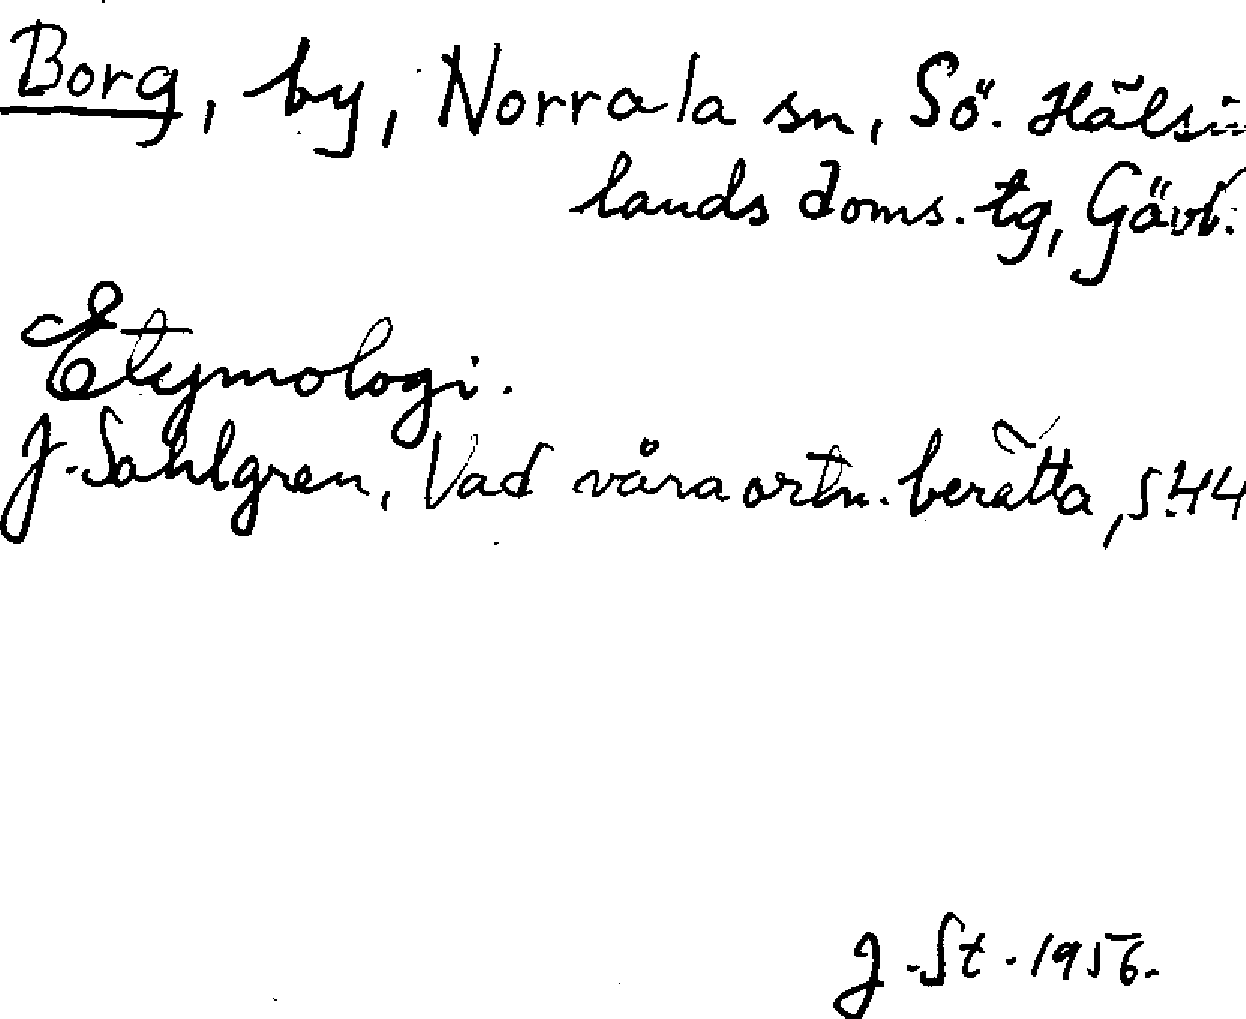 Borg, by, Norrala sn, Sö. Hälsin
lands doms. tg, Gävl.
Etymologi.
J. Sahlgren, Vad våra ortn. berätta, s. 44
J. St. 1956.